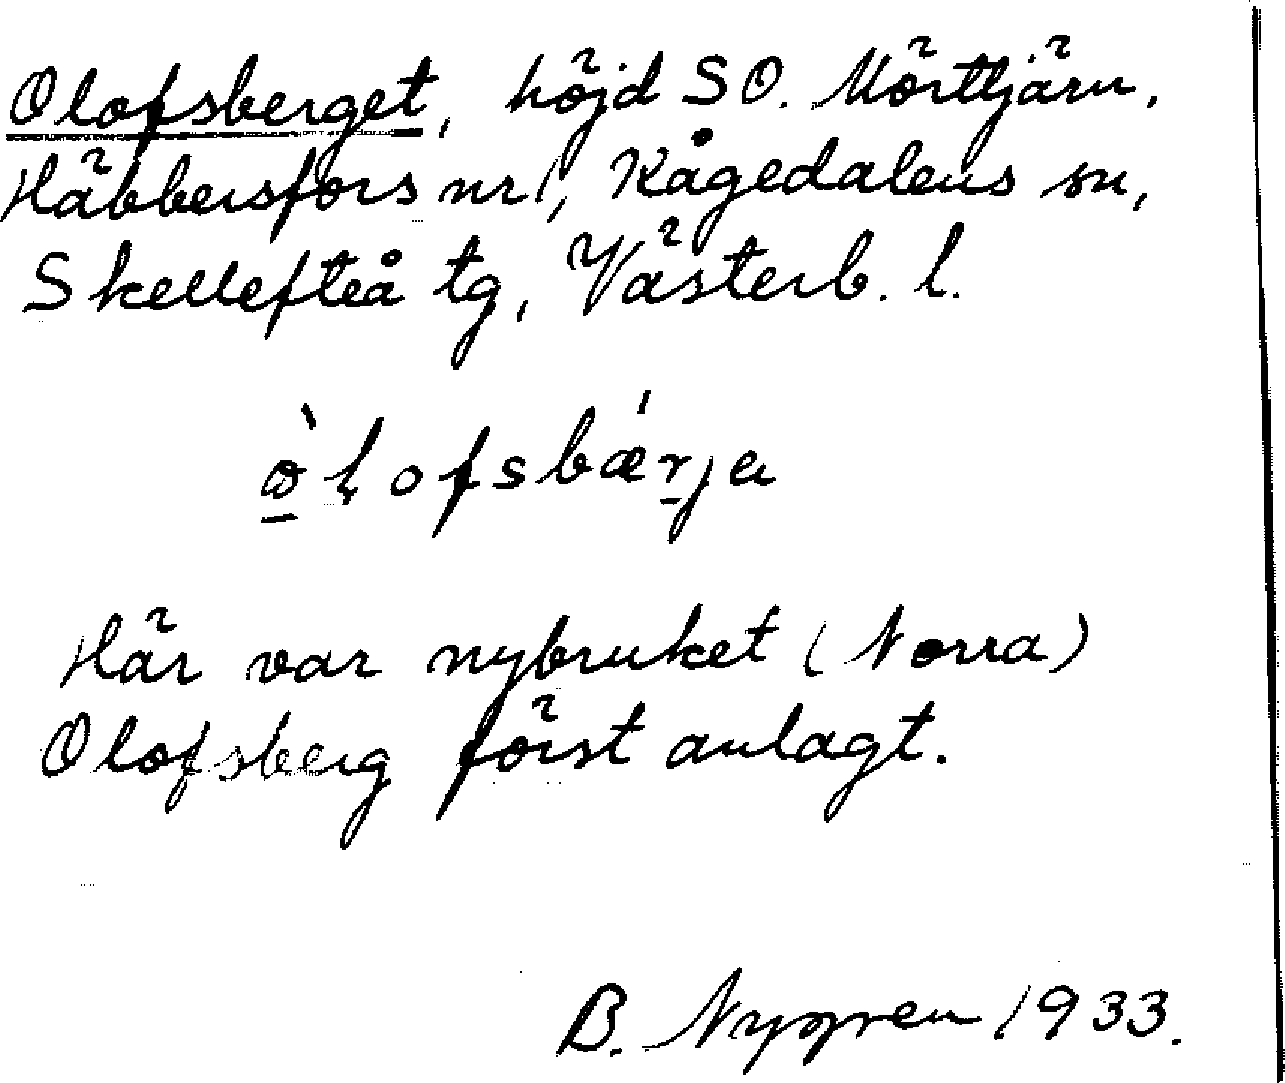 Olofsberget, höjd SO. Mörttjärn,
Häbbersfors nr 1, Kågedalens sn,
Skellefteå tg, Västerb. l.
ò̱ḷofsbǽṟja
Här var nybruket (Norra)
Olofsberg först anlagt.
B. Nygren 1933.